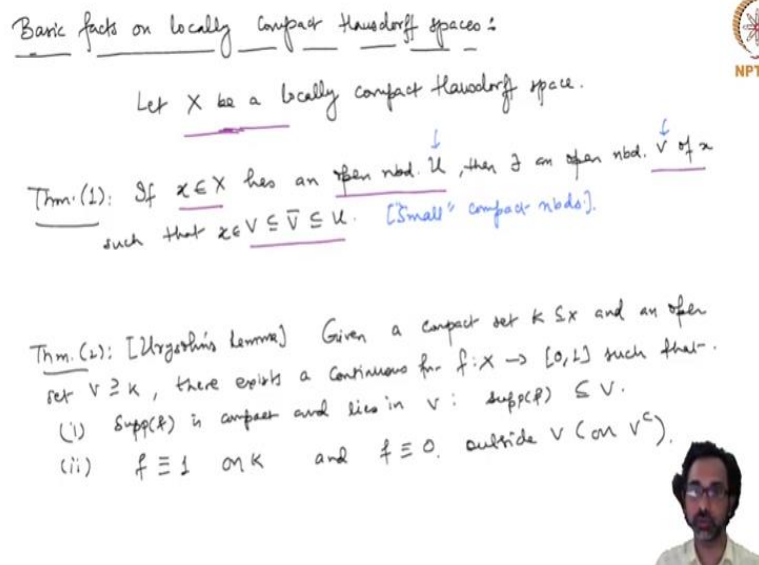 Basic facts on locally compact Hausdorff spaces:
Let X be a locally compact Hausdorff space.
Thm.(1): If x ∈ X has an open nbd. U, then ∃ an open nbd. V of x
such that x ∈ V ⊆ V̅ ⊆ U. ["Small" compact nbds.].
Thm.(2): [Urysohn's Lemma] Given a compact set K ⊆ X and an open
set V ⊇ K, there exists a continuous fn. f: X → [0,1] such that.
(i) Supp(f) is compact and lies in V: supp(f) ⊆ V.
(ii) f ≡ 1 on K and f ≡ 0. outside V (on Vᶜ).
NPT